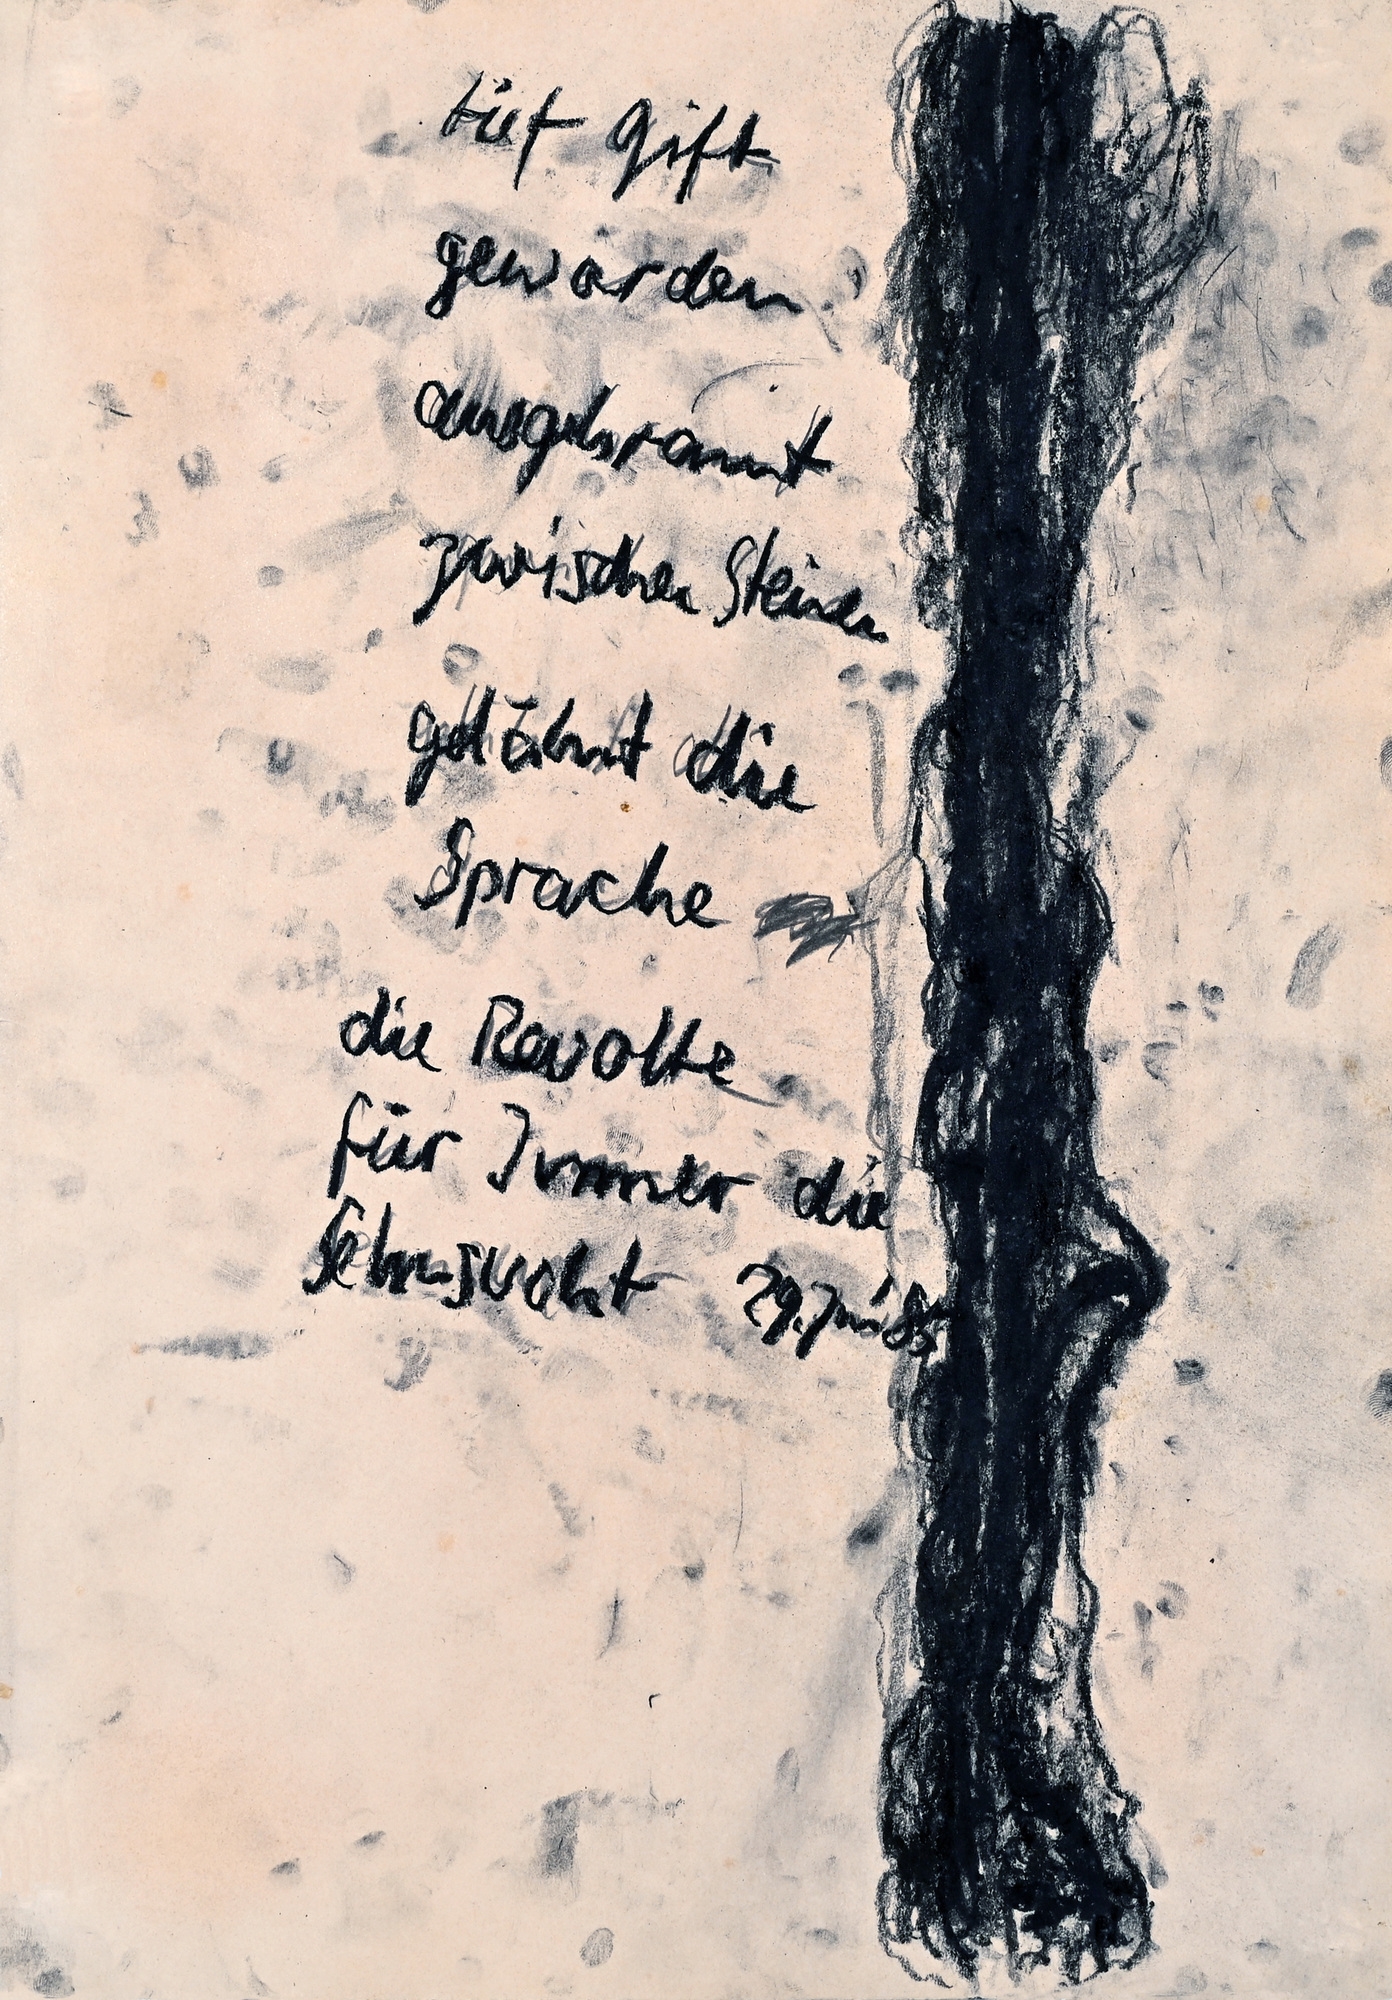 tief Gift
geworden
ausgebrannt
zwischen Steinen
gelähmt die
Sprache
die Revolte
für Immer die
Sehnsucht 29. Juni 85